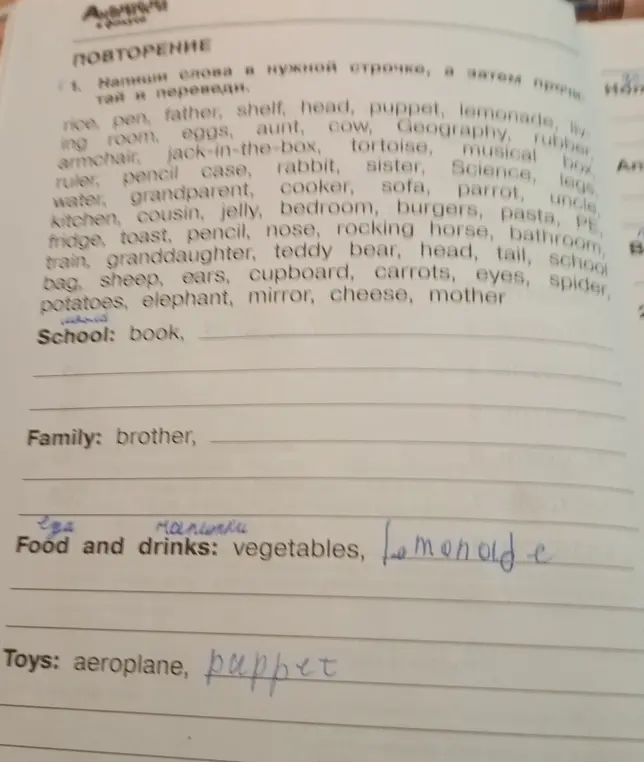 Английский
в фокусе
ПОВТОРЕНИЕ
1. Напиши слова в нужной строчке, а затем прочи-
тай и переведи.
rice, pen, father, shelf, head, puppet, lemonade, liv-
ing room, eggs, aunt, cow, Geography, rubber,
armchair, jack-in-the-box, tortoise, musical box,
ruler, pencil case, rabbit, sister, Science, legs,
water, grandparent, cooker, sofa, parrot, uncle,
kitchen, cousin, jelly, bedroom, burgers, pasta, PE,
fridge, toast, pencil, nose, rocking horse, bathroom,
train, granddaughter, teddy bear, head, tail, school
bag, sheep, ears, cupboard, carrots, eyes, spider,
potatoes, elephant, mirror, cheese, mother
School: book,
Family: brother,
еда напитки
Food and drinks: vegetables, Lemonade
Toys: aeroplane, puppet